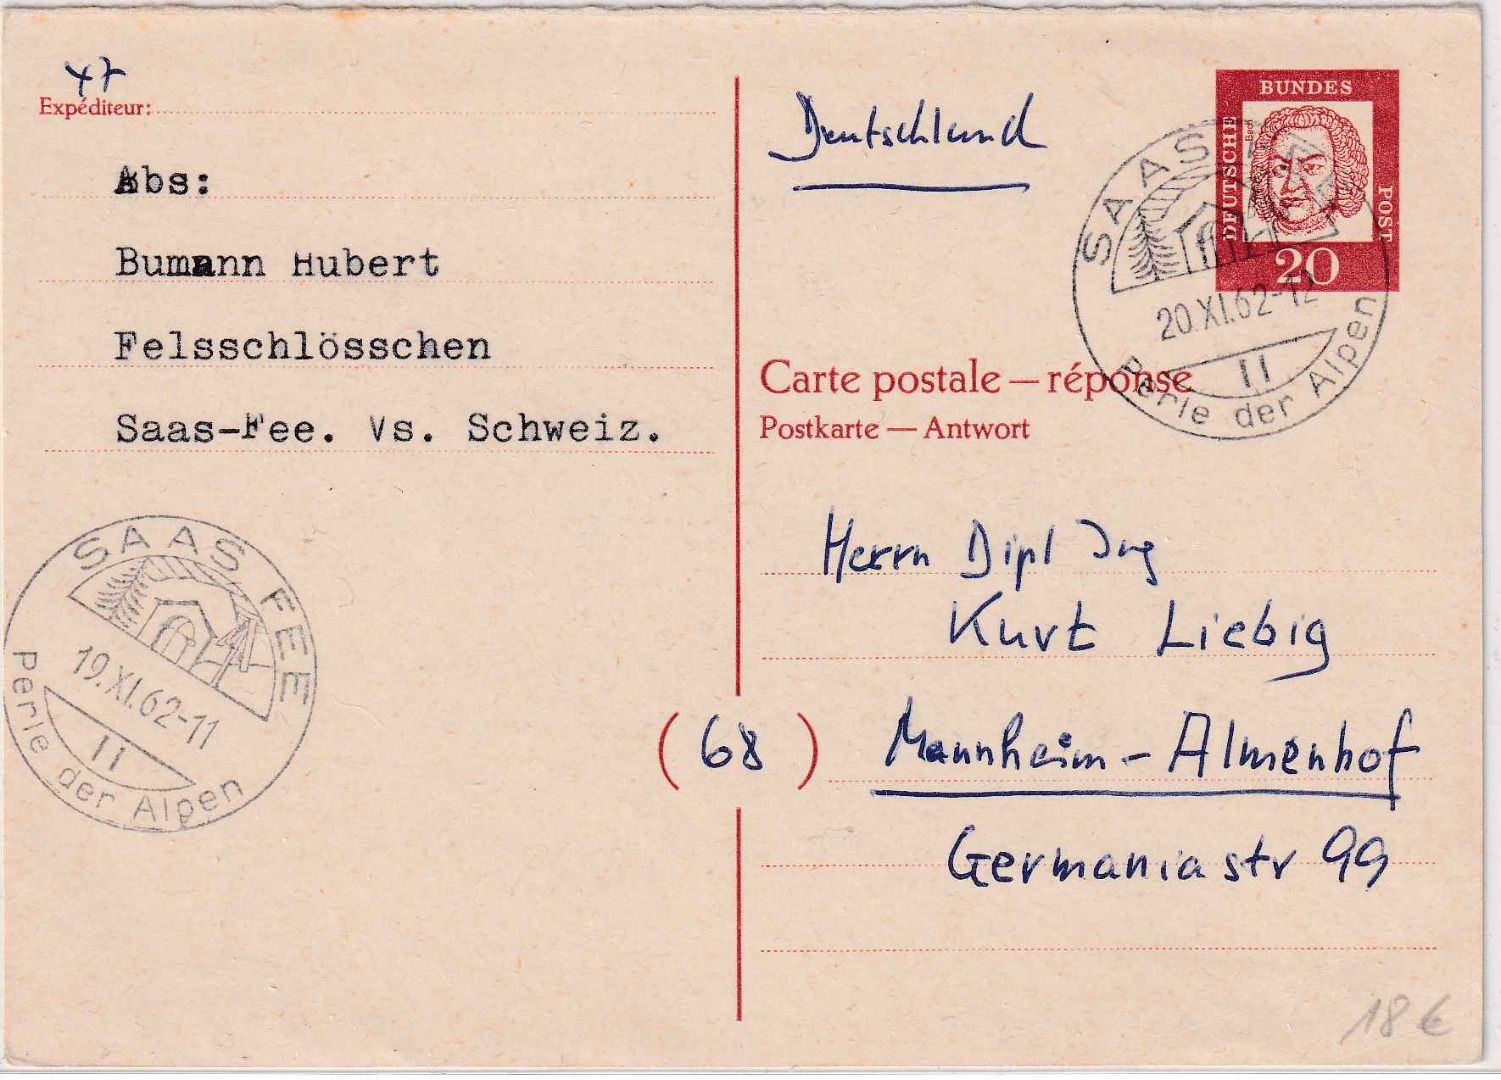 47
Expéditeur:
Abs:
Bumann Hubert
Felsschlösschen
Saas-Fee. Vs. Schweiz.
SAAS FEE
19.XI.62-11
II
Perle der Alpen
Deutschland
DEUTSCHE BUNDES POST
Bach
20
SAAS FEE
20.XI.62-12
II
Perle der Alpen
Carte postale — réponse
Postkarte — Antwort
Herrn Dipl Ing
Kurt Liebig
(68) Mannheim-Almenhof
Germaniastr 99
18 €